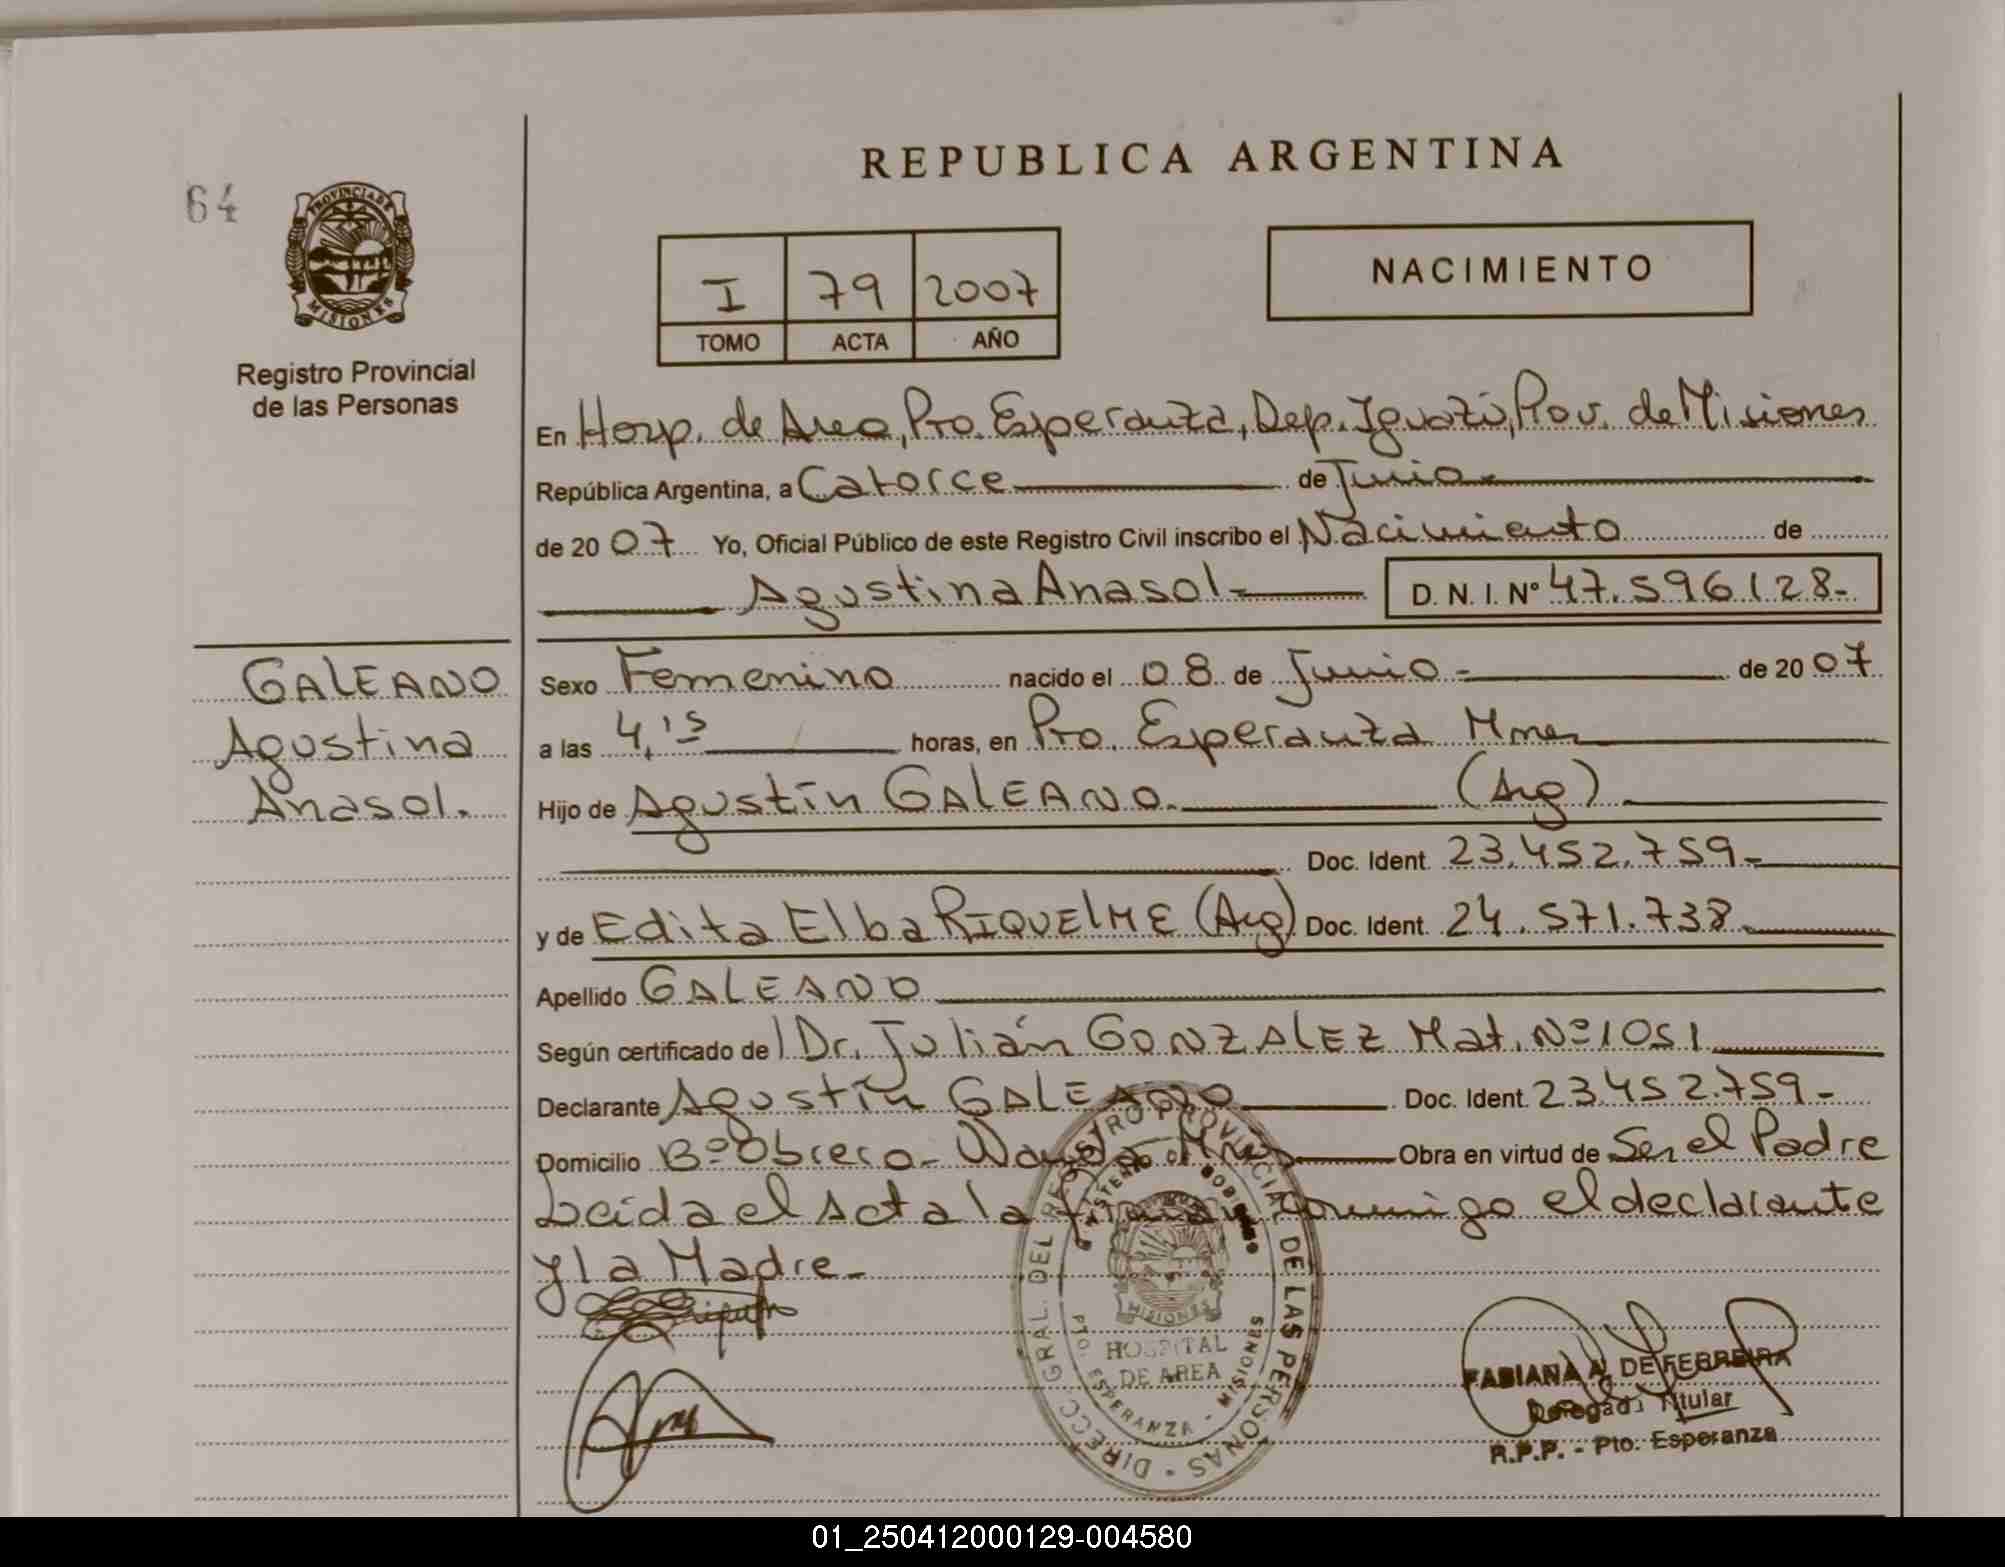 64
PROVINCIA DE
MISIONES
Registro Provincial
de las Personas
REPUBLICA ARGENTINA
I 79 2007
TOMO ACTA AÑO
NACIMIENTO
En Hosp. de Area, Pto. Esperanza, Dep. Iguazú, Prov. de Misiones
República Argentina, a Catorce de Junio
de 2007 Yo, Oficial Público de este Registro Civil inscribo el Nacimiento de
Agustina Anasol D. N. I. Nº 47.596.128-
GALEANO
Agustina
Anasol.
Sexo Femenino nacido el 08 de Junio de 2007
a las 4,15 horas, en Pto. Esperanza Mnes
Hijo de Agustín GALEANO (Arg)
Doc. Ident. 23.452.759-
y de Edita Elba RIQUELME (Arg) Doc. Ident. 24.571.738
Apellido GALEANO
Según certificado del Dr. Julián GONZALEZ Mat. Nº 1051
Declarante Agustín GALEANO Doc. Ident. 23.452.759-
Domicilio Bº Obrero - Wanda - Mnes Obra en virtud de Ser el Padre
Leída el acta la firman conmigo el declarante
y la Madre.
DIRECC. GRAL. DEL REGISTRO PROVINCIAL DE LAS PERSONAS
MISIONES
HOSPITAL
DE AREA
PTO. ESPERANZA - MISIONES
FABIANA A. DE FERREIRA
Delegada Titular
R.P.P. - Pto. Esperanza
01_250412000129-004580